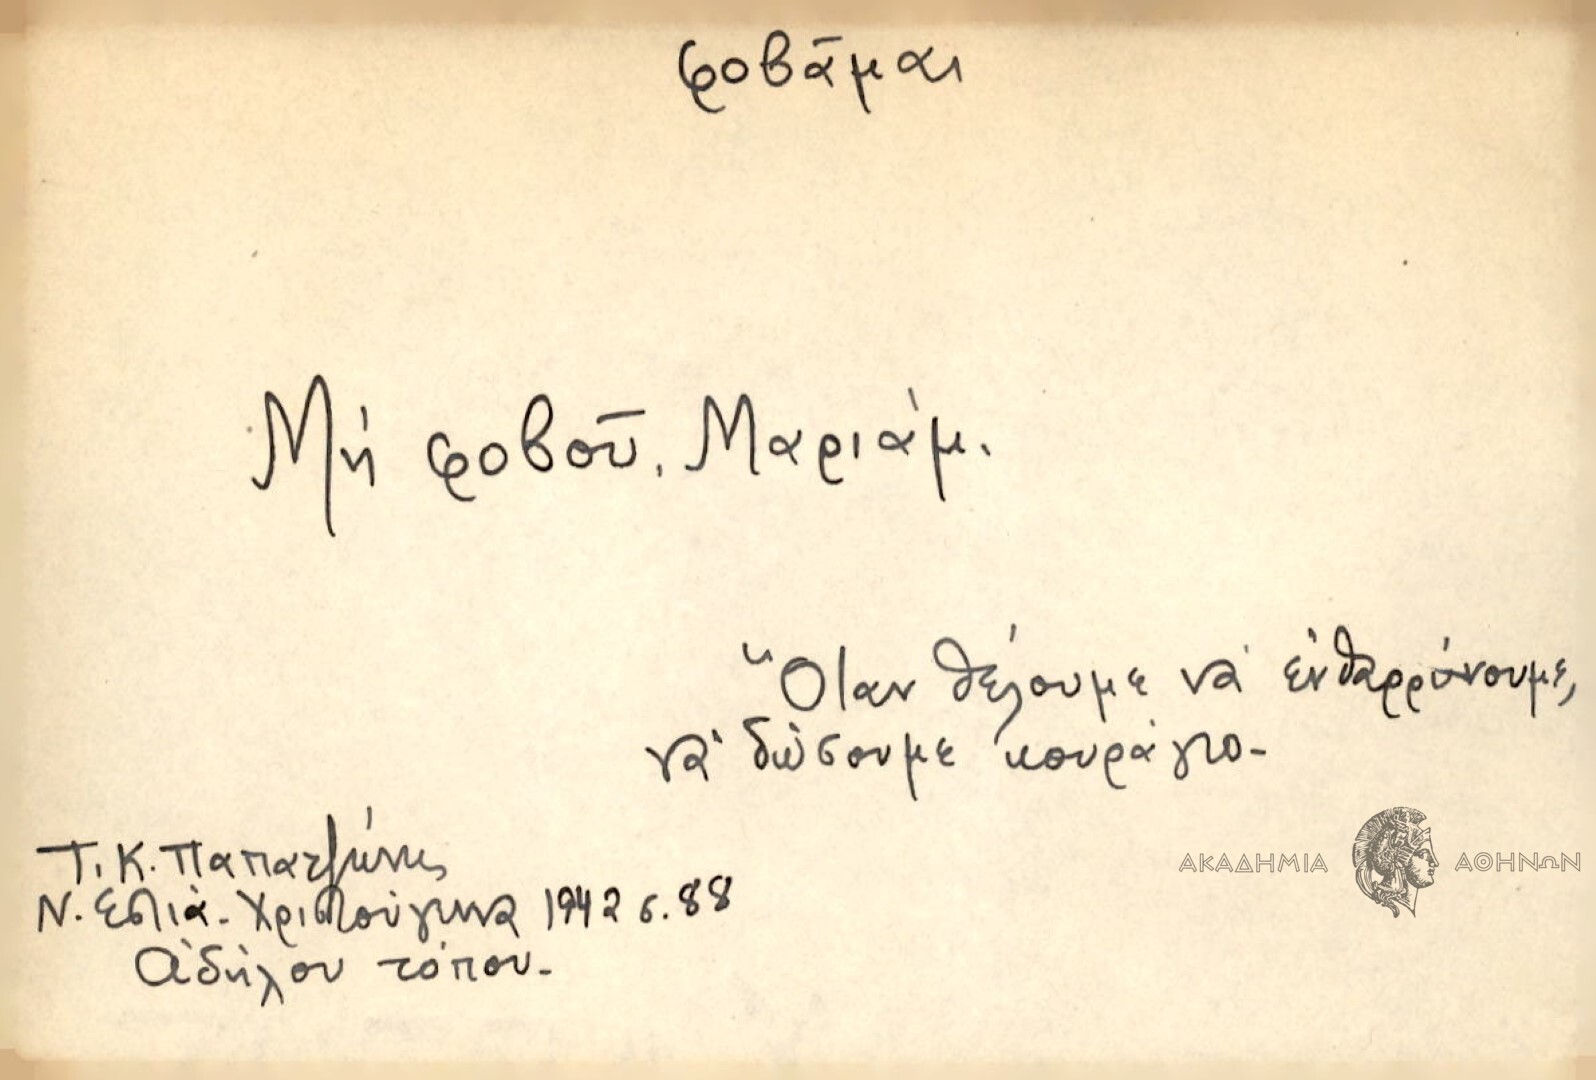 φοβᾶμαι
Μή φοβοῦ, Μαριάμ.
Ὅταν θέλουμε νά ἐνθαρρύνουμε,
νά δώσουμε κουράγιο-
Τ. Κ. Παπατζώνης
Ν. Εστία- Χριστούγεννα 1942 σ. 88
Ἀδήλου τόπου-
ΑΚΑΔΗΜΙΑ ΑΘΗΝΩΝ